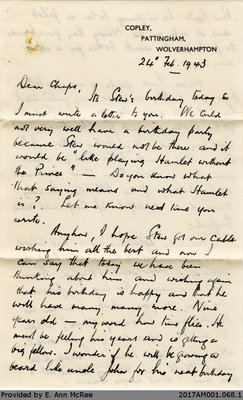 COPLEY,
PATTINGHAM,
WOLVERHAMPTON
24th Feb. 1943
Dear Chaps, Its Stew's birthday today so
I must write a letter to you. We could
not very well have a birthday party
because Stew would not be there and it
would be "like playing Hamlet without
the Prince" — Do you know what
that saying means and what Hamlet
is? Let me know next time you
write.
Anyhow, I hope Stew got our cable
wishing him all the best and now I
can say that today we have been
thinking about him and wishing again
that his birthday is happy and that he
will have many many more. Nine
years old — my word how time flies. He
must be feeling his years and is getting a
big fellow. I wonder if he will be growing a
beard like uncle John for his next birthday
Provided by E. Ann McRae
2017AM001.068.1